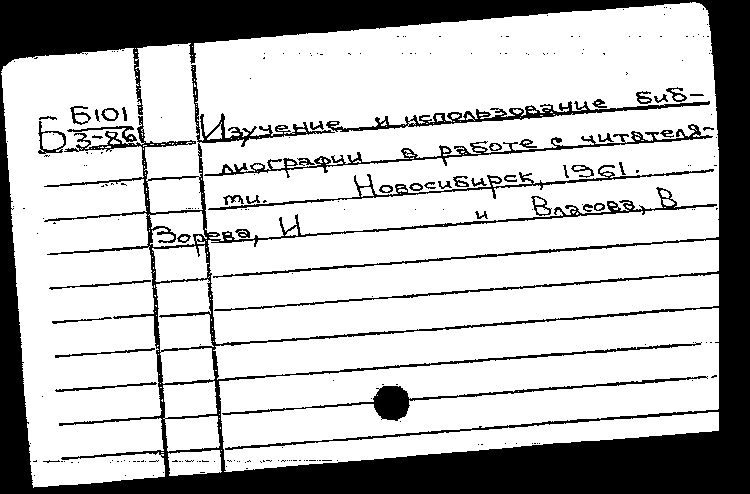 Б Б101
З-86
Изучение и использование биб-
лиографии в работе с читателя-
ми. Новосибирск, 1961.
Зорева, И и Власова, В